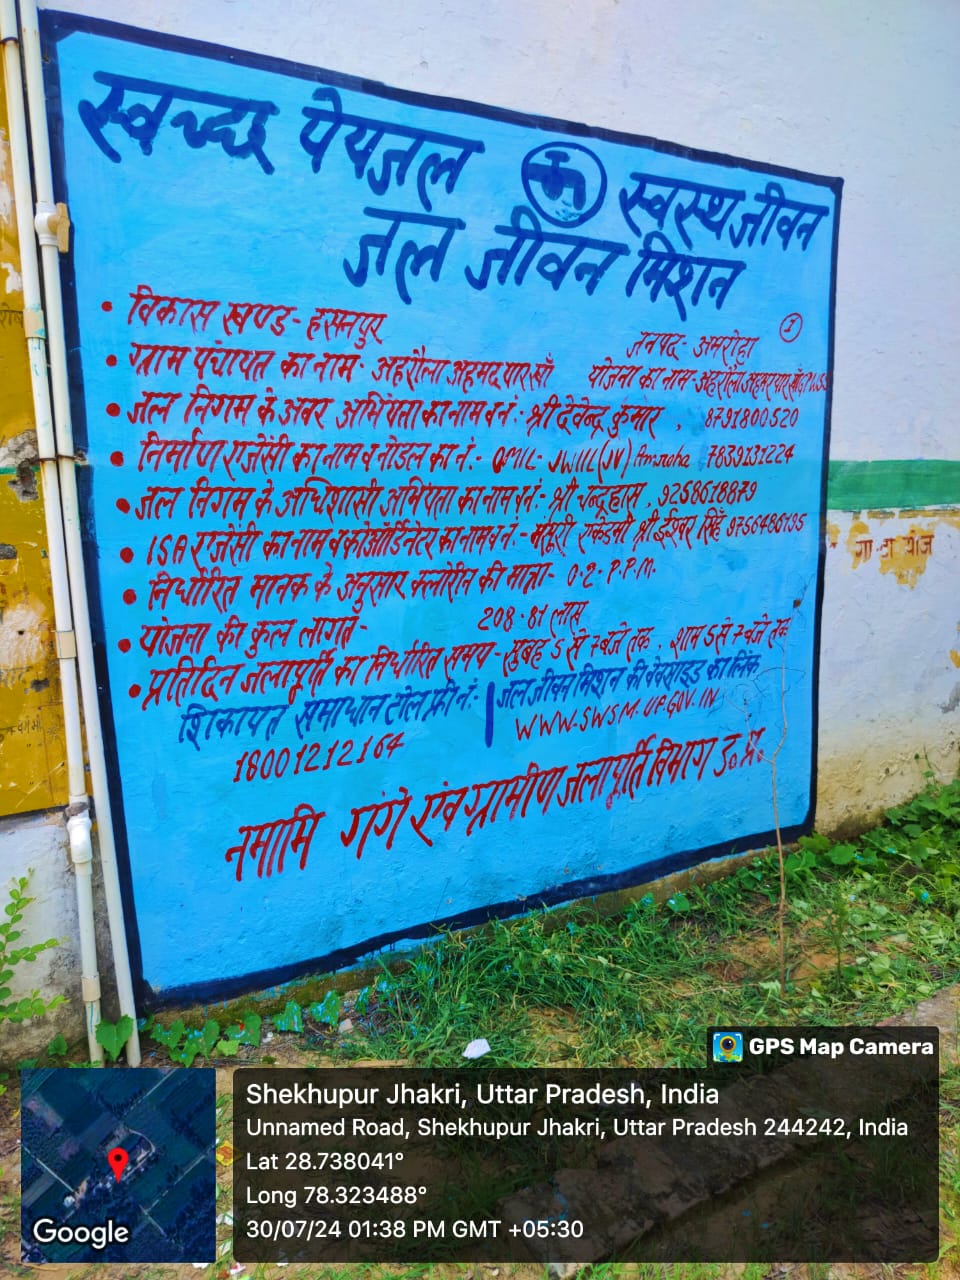 स्वच्छ पेयजल स्वस्थ जीवन
जल जीवन मिशन
1
• विकास खण्ड- हसनपुर जनपद- अमरोहा
• ग्राम पंचायत का नाम- अहरौला अहमद यार खाँ योजना का नाम- अहरौला अहमद यार खाँ
• जल निगम के अवर अभियंता का नाम व नं:- श्री देवेन्द्र कुमार , 8791800520
• निर्माण एजेंसी का नाम व नोडल का नं:- OMIL-JWIL(JV) Amroha 7839131224
• जल निगम के अधिशासी अभियंता का नाम व नं:- श्री चन्द्रहास , 9258618879
• ISA एजेंसी का नाम व कोऑर्डिनेटर का नाम व नं:- मंसूरी एकेडमी श्री ईश्वर सिंह 9756486195
• निर्धारित मानक के अनुसार क्लोरीन की मात्रा- 0.2. P.P.M.
• योजना की कुल लागत- 208.81 लाख
• प्रतिदिन जलापूर्ति का निर्धारित समय- सुबह 5 से 7 बजे तक , शाम 5 से 7 बजे तक
शिकायत समाधान टोल फ्री नं:-
18001212164
जल जीवन मिशन की वेबसाइड का लिंक
WWW.SWSM.UP.GOV.IN
नमामि गंगे एंव ग्रामीण जलापूर्ति विभाग उ० प्र०
GPS Map Camera
Shekhupur Jhakri, Uttar Pradesh, India
Unnamed Road, Shekhupur Jhakri, Uttar Pradesh 244242, India
Lat 28.738041°
Long 78.323488°
30/07/24 01:38 PM GMT +05:30
Google